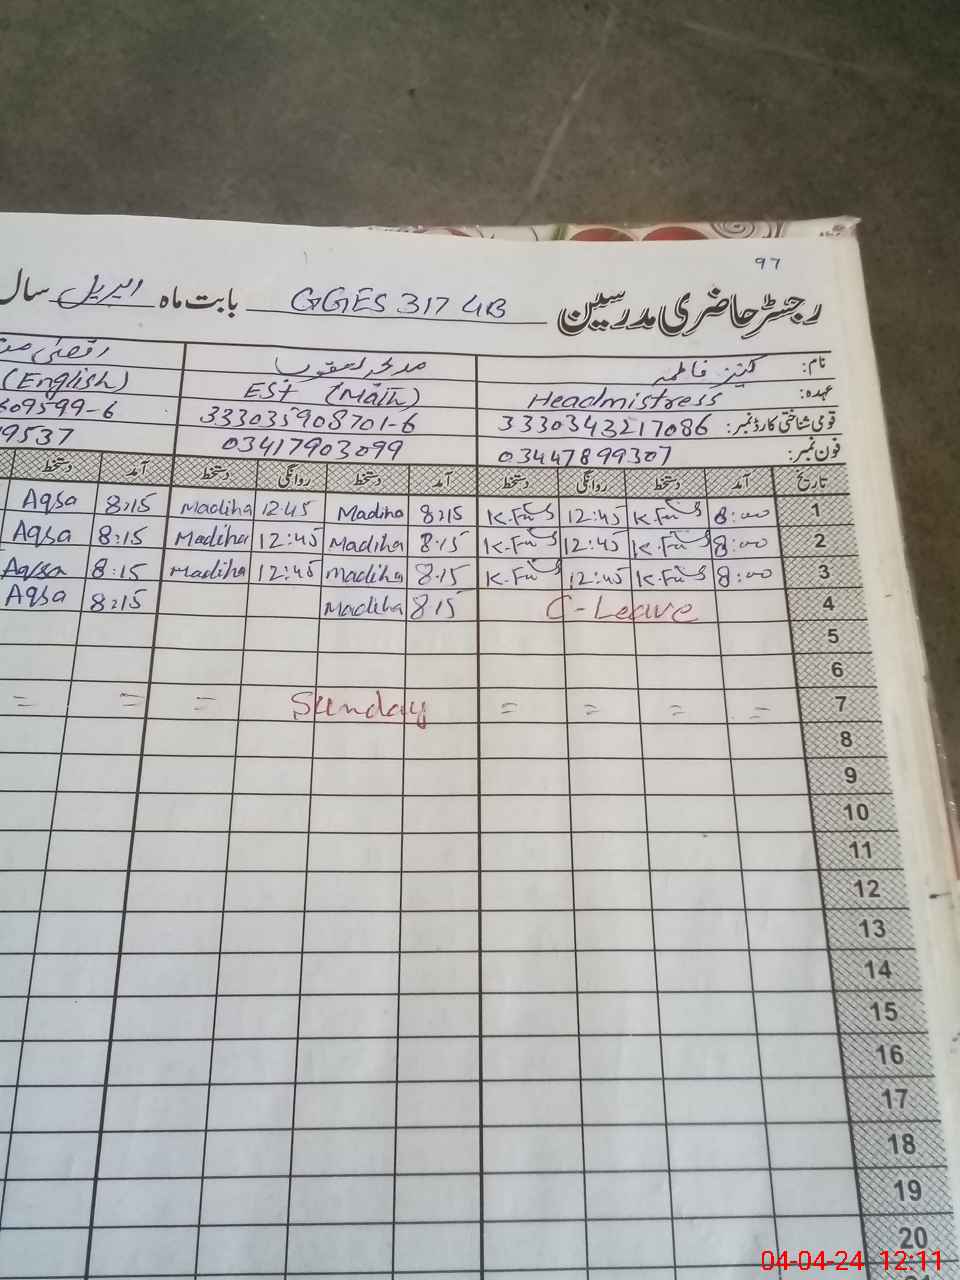 97
رجسٹر حاضری مدرسین GGES 317 GB بابت ماہ اپریل سال
نام: کنیز فاطمہ مدیحہ یعقوب اقصیٰ
عہدہ: Headmistress EST (Math) (English)
قومی شناختی کارڈ نمبر: 3330343217086 333035908701-6 609599-6
فون نمبر: 03447899307 03417903099 9537
تاریخ آمد دستخط روانگی دستخط آمد دستخط روانگی دستخط آمد دستخط
1 8:00 K.Fatima 12:45 K.Fatima 8:15 Madiha 12:45 Madiha 8:15 Aqsa
2 8:00 K.Fatima 12:45 K.Fatima 8:15 Madiha 12:45 Madiha 8:15 Aqsa
3 8:00 K.Fatima 12:45 K.Fatima 8:15 Madiha 12:45 Madiha 8:15 Aqsa
4 C-Leave 8:15 Madiha 8:15 Aqsa
5
6
7 = = = = Sunday = = =
8
9
10
11
12
13
14
15
16
17
18
19
20
04-04-24 12:11